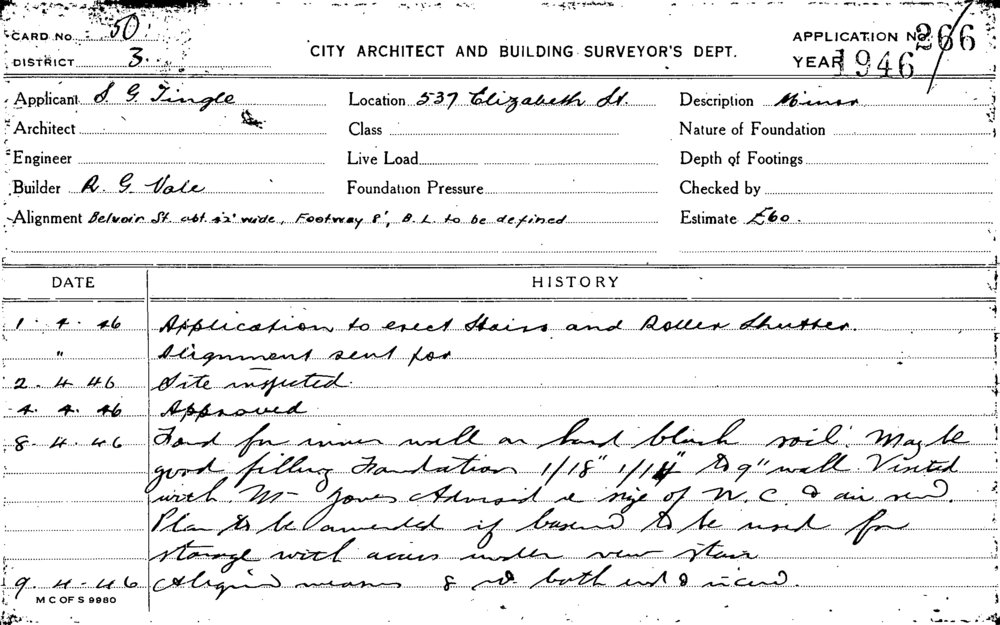 CARD NO. 50.
DISTRICT 3.
CITY ARCHITECT AND BUILDING SURVEYOR'S DEPT.
APPLICATION NO. 266
YEAR 1946
Applicant S. G. Tingle
Location 537 Elizabeth St.
Description Minor
Architect
Class
Nature of Foundation
Engineer
Live Load
Depth of Footings
Builder R. G. Vale
Foundation Pressure
Checked by
Alignment Belvoir St. abt. wide, Footway 8', B. L. to be defined
Estimate £60.
DATE HISTORY
1. 4. 46 Application to erect Stairs and Roller Shutter.
" Alignment sent for
2. 4 46 Site inspected.
4. 4. 46 Approved
8. 4. 46 Found for inner wall on hard black soil. May be
good filling Foundation 1/18" 1/14" to 9" wall. Visited
with Mr Jones Advised re size of W. C & air
Plan to be amended if to be used for
storage with access under new stair
9. 4. 46 8 both
M C OF S 9980